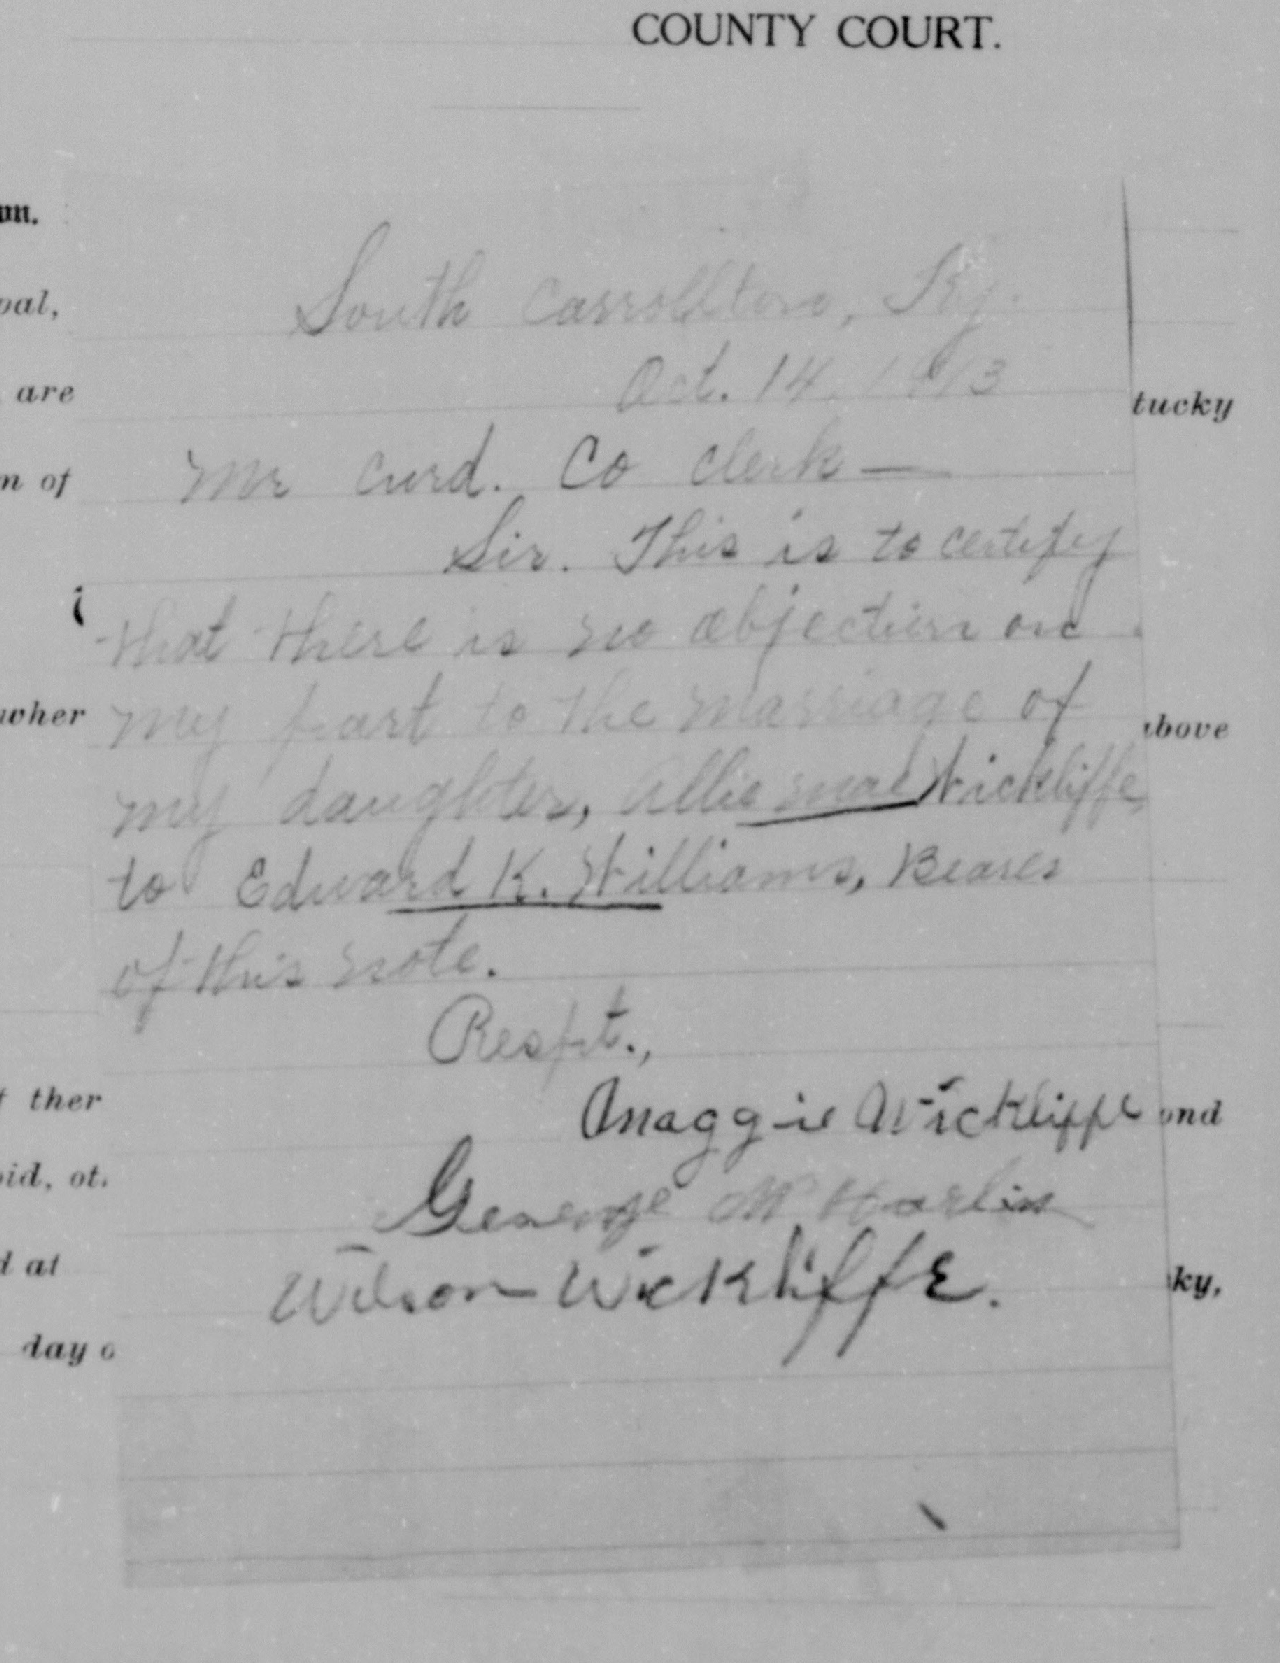 COUNTY COURT.
on.
oal,
South Carrollton, Ky.
are
Oct. 14, 1913
tucky
n of
Mr Curd. Co Clerk —
Sir. This is to certify
that there is no objection on
wher
my part to the marriage of
above
my daughter, Allie Mae Wickliffe,
to Edward K. Williams, Bearer
of this note.
Respt.,
ther
Maggie Wickliffe
ond
oid, ot
George
Wilson Wickliffe.
d at
ky,
day o